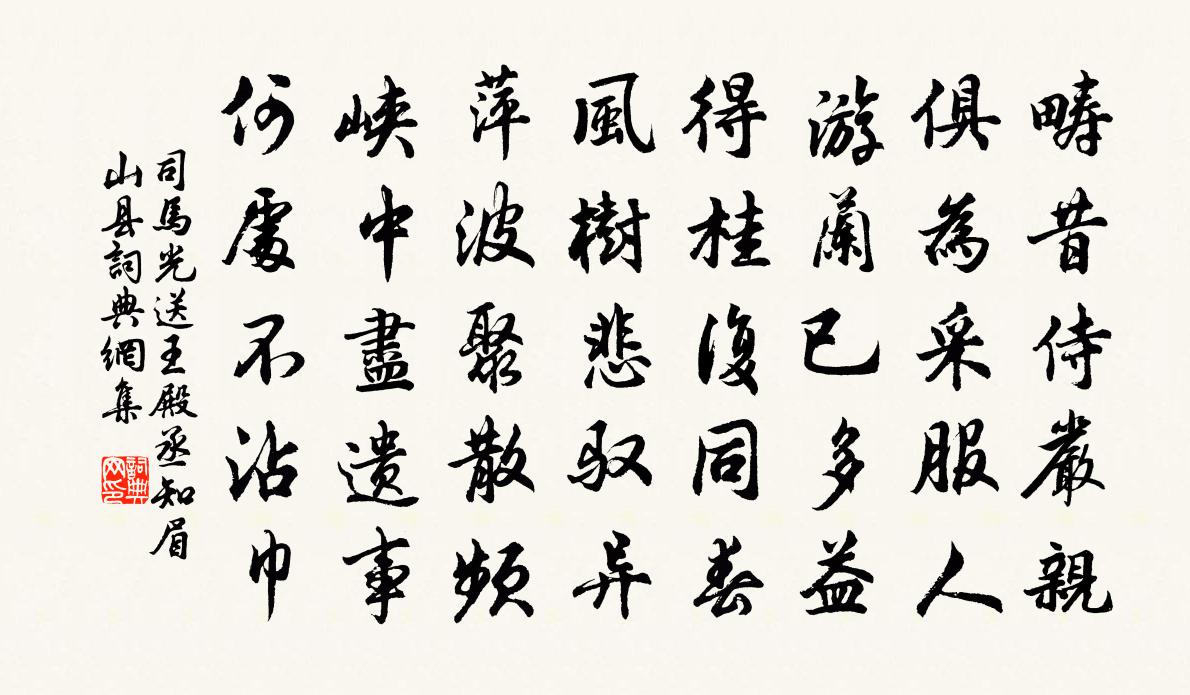 疇昔侍嚴親
俱為采服人
游蘭已多益
得桂復同春
風樹悲驭异
萍波聚散頻
峽中盡遗事
何處不沾巾
司馬光送王殿丞知眉
山县詞典網集
詞典网印